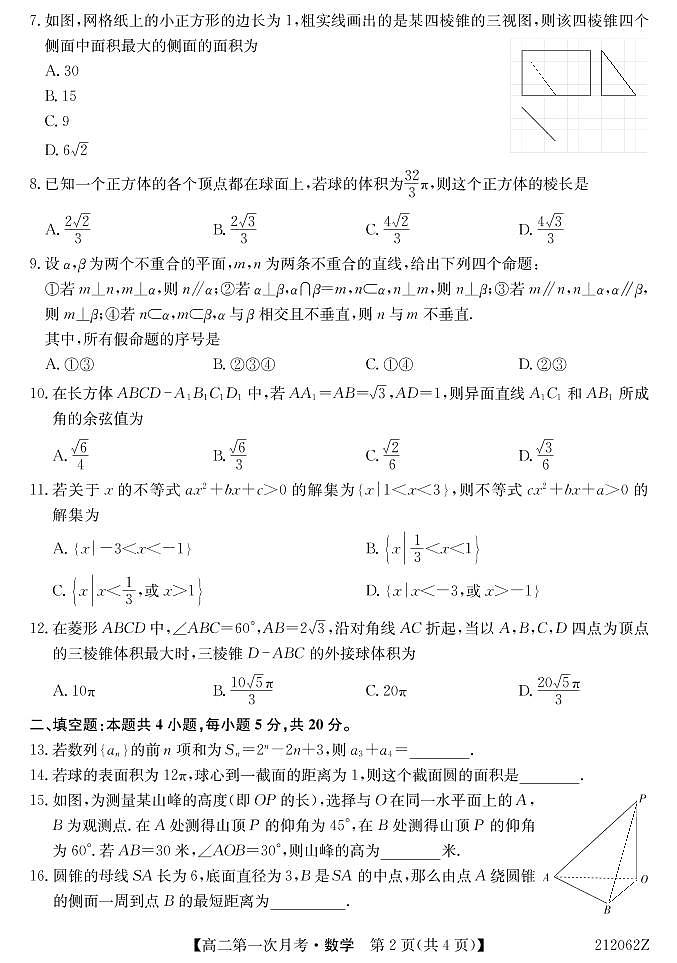 7. 如图,网格纸上的小正方形的边长为 1,粗实线画出的是某四棱锥的三视图,则该四棱锥四个
侧面中面积最大的侧面的面积为
A. 30
B. 15
C. 9
D. 6√2
8. 已知一个正方体的各个顶点都在球面上,若球的体积为32/3π,则这个正方体的棱长是
A. 2√2/3 B. 2√3/3 C. 4√2/3 D. 4√3/3
9. 设 α,β 为两个不重合的平面,m,n 为两条不重合的直线,给出下列四个命题:
①若 m⊥n,m⊥α,则 n∥α;②若 α⊥β,α∩β=m,n⊂α,n⊥m,则 n⊥β;③若 m∥n,n⊥α,α∥β,
则 m⊥β;④若 n⊂α,m⊂β,α 与 β 相交且不垂直,则 n 与 m 不垂直.
其中,所有假命题的序号是
A. ①③ B. ②③④ C. ①④ D. ②③
10. 在长方体 ABCD-A₁B₁C₁D₁ 中,若 AA₁=AB=√3,AD=1,则异面直线 A₁C₁ 和 AB₁ 所成
角的余弦值为
A. √6/4 B. √6/3 C. √2/6 D. √3/6
11. 若关于 x 的不等式 ax²+bx+c>0 的解集为{x|1<x<3},则不等式 cx²+bx+a>0 的
解集为
A. {x|-3<x<-1} B. {x|1/3<x<1}
C. {x|x<1/3,或 x>1} D. {x|x<-3,或 x>-1}
12. 在菱形 ABCD 中,∠ABC=60°,AB=2√3,沿对角线 AC 折起,当以 A,B,C,D 四点为顶点
的三棱锥体积最大时,三棱锥 D-ABC 的外接球体积为
A. 10π B. 10√5π/3 C. 20π D. 20√5π/3
二、填空题:本题共 4 小题,每小题 5 分,共 20 分。
13. 若数列{aₙ}的前 n 项和为 Sₙ=2ⁿ-2n+3,则 a₃+a₄=________.
14. 若球的表面积为 12π,球心到一截面的距离为 1,则这个截面圆的面积是________.
15. 如图,为测量某山峰的高度(即 OP 的长),选择与 O 在同一水平面上的 A,
B 为观测点. 在 A 处测得山顶 P 的仰角为 45°,在 B 处测得山顶 P 的仰角
为 60°. 若 AB=30 米,∠AOB=30°,则山峰的高为________米.
16. 圆锥的母线 SA 长为 6,底面直径为 3,B 是 SA 的中点,那么由点 A 绕圆锥
的侧面一周到点 B 的最短距离为__________.
P
A
O
B
【高二第一次月考·数学 第 2 页(共 4 页)】 212062Z